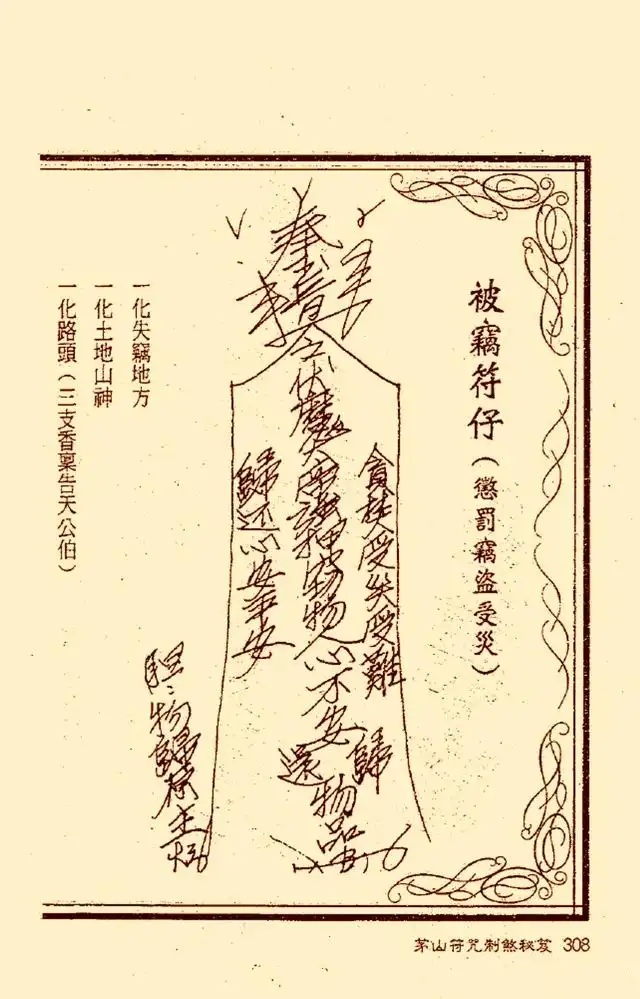 被竊符仔(懲罰竊盜受災)
貪受災受難
奉
伏魔大竊物人心不安
歸還
物品
歸还心安平安
物歸原主
一化失竊地方
一化土地山神
一化路頭(三支香稟告天公伯)
茅山符咒制煞秘笈 308